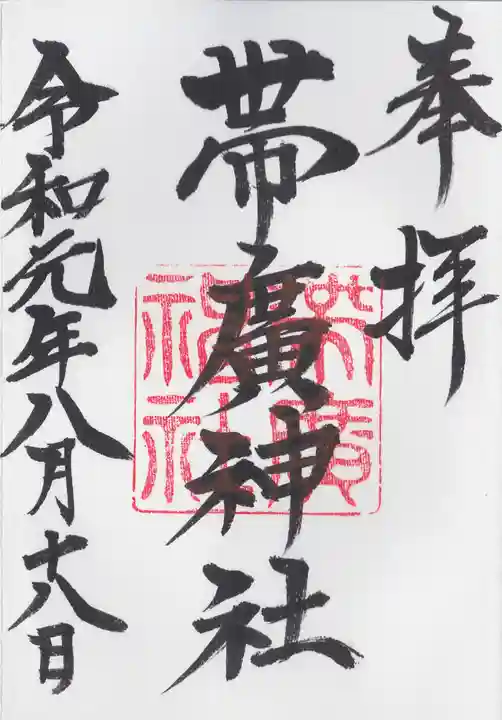 奉拝
帯廣神社
令和元年八月十八日
帯廣神社